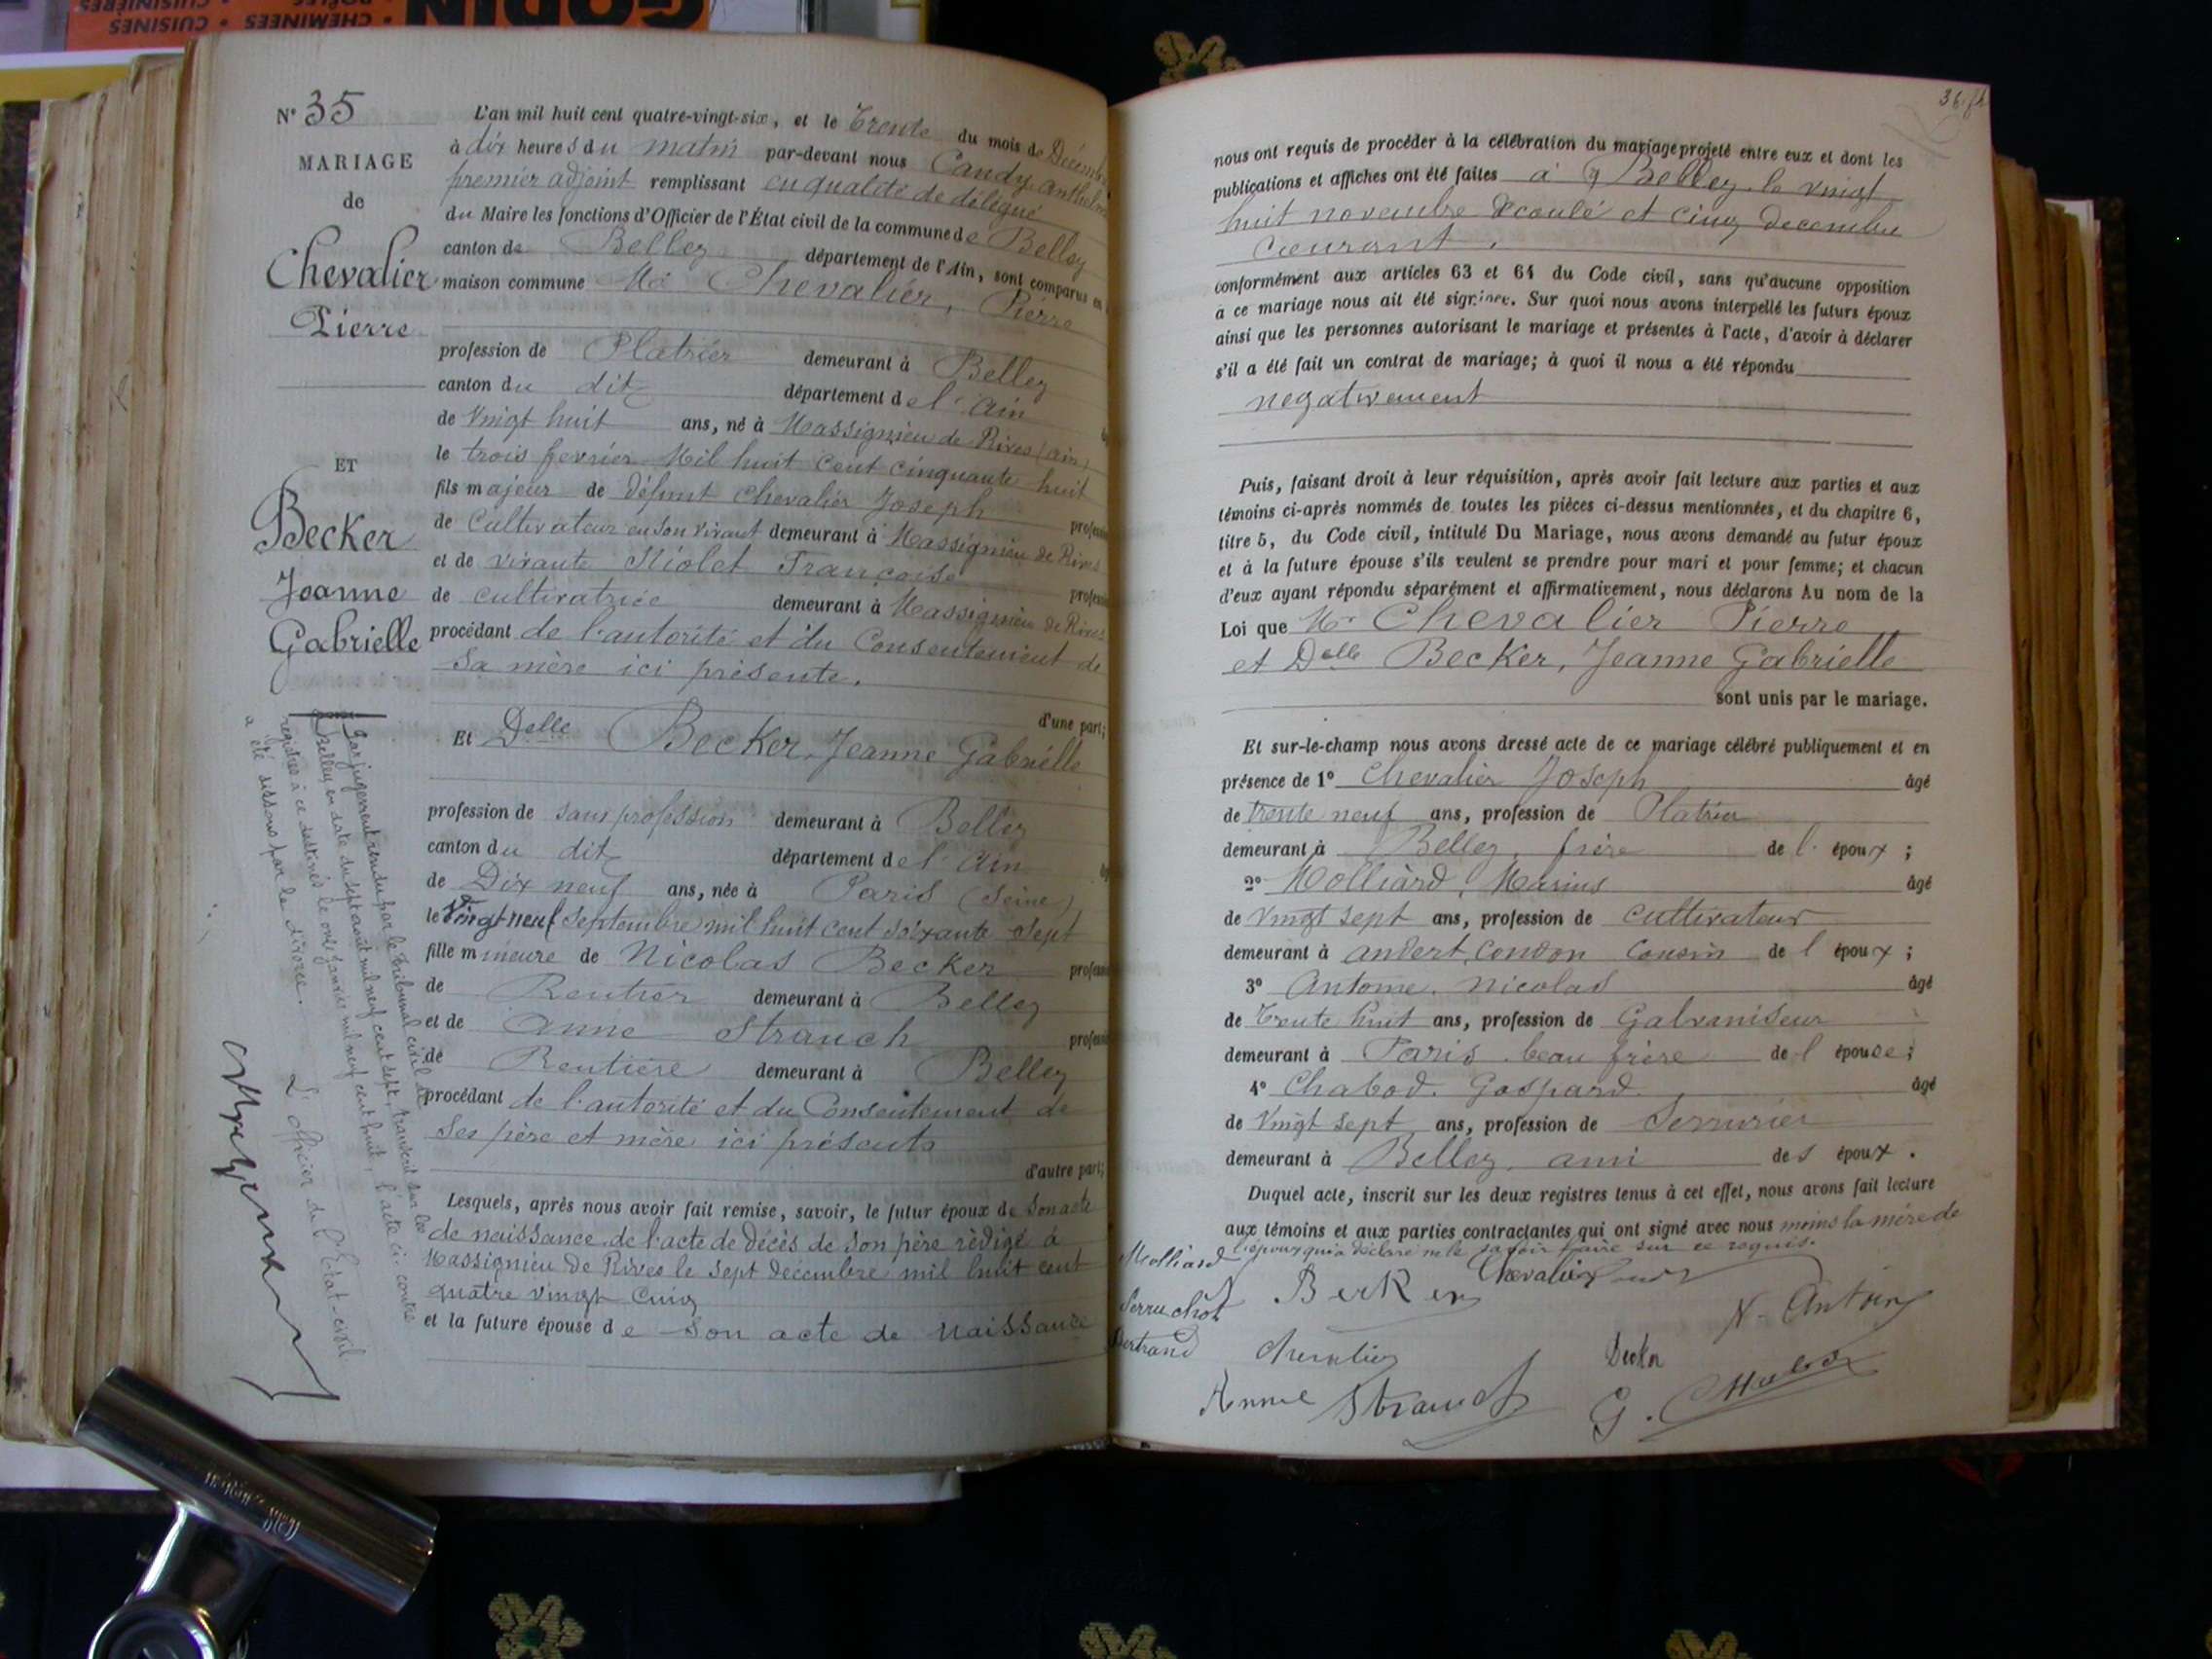 GODIN
CHEMINÉES • CUISINES
N° 35
MARIAGE
de
Chevalier
Pierre
ET
Becker
Jeanne
Gabrielle
Par jugement rendu par le Tribunal civil de
Belley, en date du sept août mil neuf cent sept, transcrit sur les
registres à ce destinés le onze janvier mil neuf cent huit, l'acte ci-contre
a été dissous par le divorce.
L'officier de l'Etat-civil
L'an mil huit cent quatre-vingt-six, et le Trente du mois de Décembre
à dix heures du matin par-devant nous Candy Anthelme
premier adjoint remplissant en qualité de délégué
du Maire les fonctions d'Officier de l'État civil de la commune de Belley
canton de Belley département de l'Ain, sont comparus en
maison commune Mr Chevalier, Pierre
profession de Platrier demeurant à Belley
canton du dit département de l'Ain
de Vingt huit ans, né à Massignieu de Rives (ain)
le trois fevrier Mil huit cent cinquante huit
fils majeur de défunt Chevalier Joseph
de Cultivateur en son vivant demeurant à Massignieu de Rives
et de vivante Niolet Françoise
de cultivatrice demeurant à Massignieu de Rives
procédant de l'autorité et du Consentement de
sa mère ici présente.
d'une part;
Et Delle Becker, Jeanne Gabrielle
profession de sans profession demeurant à Belley
canton du dit département de l'Ain
de Dix neuf ans, née à Paris (Seine)
le Vingt neuf Septembre mil huit cent soixante sept
fille mineure de Nicolas Becker
de Rentier demeurant à Belley
et de Anne Strauch
de Rentière demeurant à Belley
procédant de l'autorité et du Consentement de
ses père et mère ici présents
d'autre part;
Lesquels, après nous avoir fait remise, savoir, le futur époux de son acte
de naissance de l'acte de décès de son père rédigé à
Massignieu de Rives le sept décembre mil huit cent
quatre vingt cinq
et la future épouse de son acte de naissance
nous ont requis de procéder à la célébration du mariage projeté entre eux et dont les
publications et affiches ont été faites à Belley le vingt
huit novembre écoulé et cinq decembre
courant.
conformément aux articles 63 et 64 du Code civil, sans qu'aucune opposition
à ce mariage nous ait été signifiée. Sur quoi nous avons interpellé les futurs époux
ainsi que les personnes autorisant le mariage et présentes à l'acte, d'avoir à déclarer
s'il a été fait un contrat de mariage; à quoi il nous a été répondu
negativement
Puis, faisant droit à leur réquisition, après avoir fait lecture aux parties et aux
témoins ci-après nommés de toutes les pièces ci-dessus mentionnées, et du chapitre 6,
titre 5, du Code civil, intitulé Du Mariage, nous avons demandé au futur époux
et à la future épouse s'ils veulent se prendre pour mari et pour femme; et chacun
d'eux ayant répondu séparément et affirmativement, nous déclarons Au nom de la
Loi que Mr Chevalier Pierre
et Delle Becker, Jeanne Gabrielle
sont unis par le mariage.
Et sur-le-champ nous avons dressé acte de ce mariage célébré publiquement et en
présence de 1° Chevalier Joseph âgé
de trente neuf ans, profession de Platrier
demeurant à Belley, frère de l' époux ;
2° Molliard, Marius âgé
de vingt sept ans, profession de cultivateur
demeurant à andert, Condon Cousin de l époux ;
3° Antoine, Nicolas âgé
de Trente huit ans, profession de Galvaniseur
demeurant à Paris beau frère de l épouse ;
4° Chabod, Gaspard âgé
de Vingt sept ans, profession de Serrurier
demeurant à Belley, ami des époux .
Duquel acte, inscrit sur les deux registres tenus à cet effet, nous avons fait lecture
aux témoins et aux parties contractantes qui ont signé avec nous moins la mère de
l'époux qui a déclaré ne le savoir faire sur ce requis.
Molliard
Chevalier
Serruchot
N. Antoine
Bertrand
Chevalier
Anne Strauch
G. Chabod